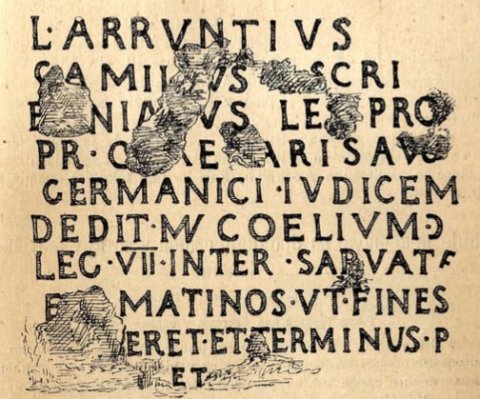 L·ARRVNTIVS
CAMILLVS SCRI
NIANVS LEG PRO
PR·C CAESARIS AVG
GERMANICI·IVDICEM
DEDIT·M COELIVM·Ɔ
LEG·VII·INTER·SAPVATE
MATINOS·VT·FINES
ERET·ET·TERMINUS·P
ET